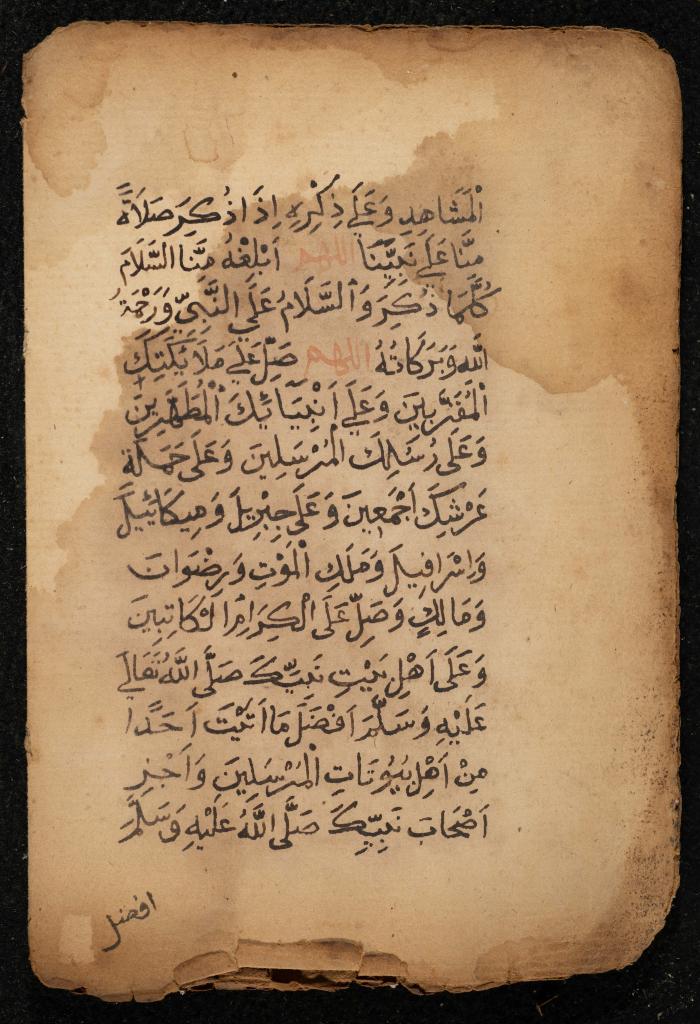 الْمَشَاهِدِ وَعَلَى ذِكْرِهِ اِذَا ذُكِرَ صَلَاةً
مِنَّا عَلَى نَبِيِّنَا اللهم اَبْلِغْهُ مِنَّا السَّلَامَ
كُلَّمَا ذُكِرَ وَالسَّلَامُ عَلَى النَّبِيِّ وَرَحْمَةُ
اللهِ وَبَرَكَاتُهُ اللهم صَلِّ عَلَى مَلَائِكَتِكَ
الْمُقَرَّبِينَ وَعَلَى اَنْبِيَائِكَ الْمُطَهَّرِينَ
وَعَلَى رُسُلِكَ الْمُرْسَلِينَ وَعَلَى حَمَلَةِ
عَرْشِكَ اَجْمَعِينَ وَعَلَى جِبْرِيلَ وَمِيكَائِيلَ
وَاِسْرَافِيلَ وَمَلَكِ الْمَوْتِ وَرِضْوَانَ
وَمَالِكٍ وَصَلِّ عَلَى الْكِرَامِ الْكَاتِبِينَ
وَعَلَى اَهْلِ بَيْتِ نَبِيِّكَ صَلَّى اللَّهُ تَعَالَى
عَلَيْهِ وَسَلَّمَ اَفْضَلَ مَا اَتَيْتَ اَحَدًا
مِنْ اَهْلِ بُيُوتَاتِ الْمُرْسَلِينَ وَاَجْزِ
اَصْحَابَ نَبِيِّكَ صَلَّى اللَّهُ عَلَيْهِ وَسَلَّمَ
افضل